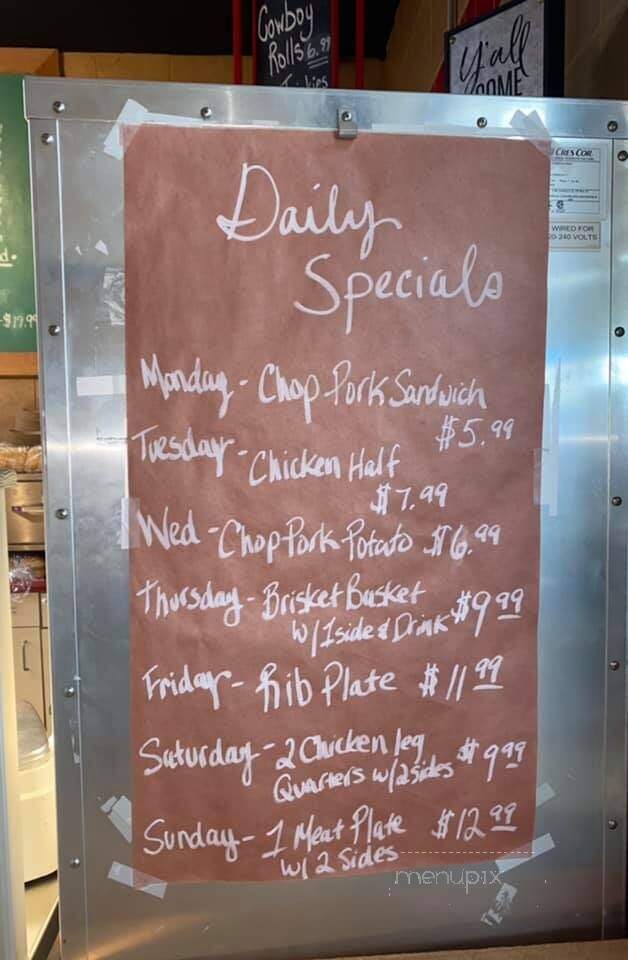 Cowboy
Rolls 6.99
y'all
d.
$17.99
CRES COR
WIRED FOR
20-240 VOLTS
Daily
Specials
Monday - Chop Pork Sandwich
$5.99
Tuesday - Chicken Half
$7.99
Wed - Chop Pork Potato $6.99
Thursday - Brisket Basket
w/1 side & Drink $9.99
Friday - Rib Plate $11.99
Saturday - 2 Chicken leg
Quarters w/2 sides $9.99
Sunday - 1 Meat Plate $12.99
w/ 2 Sides
menupix